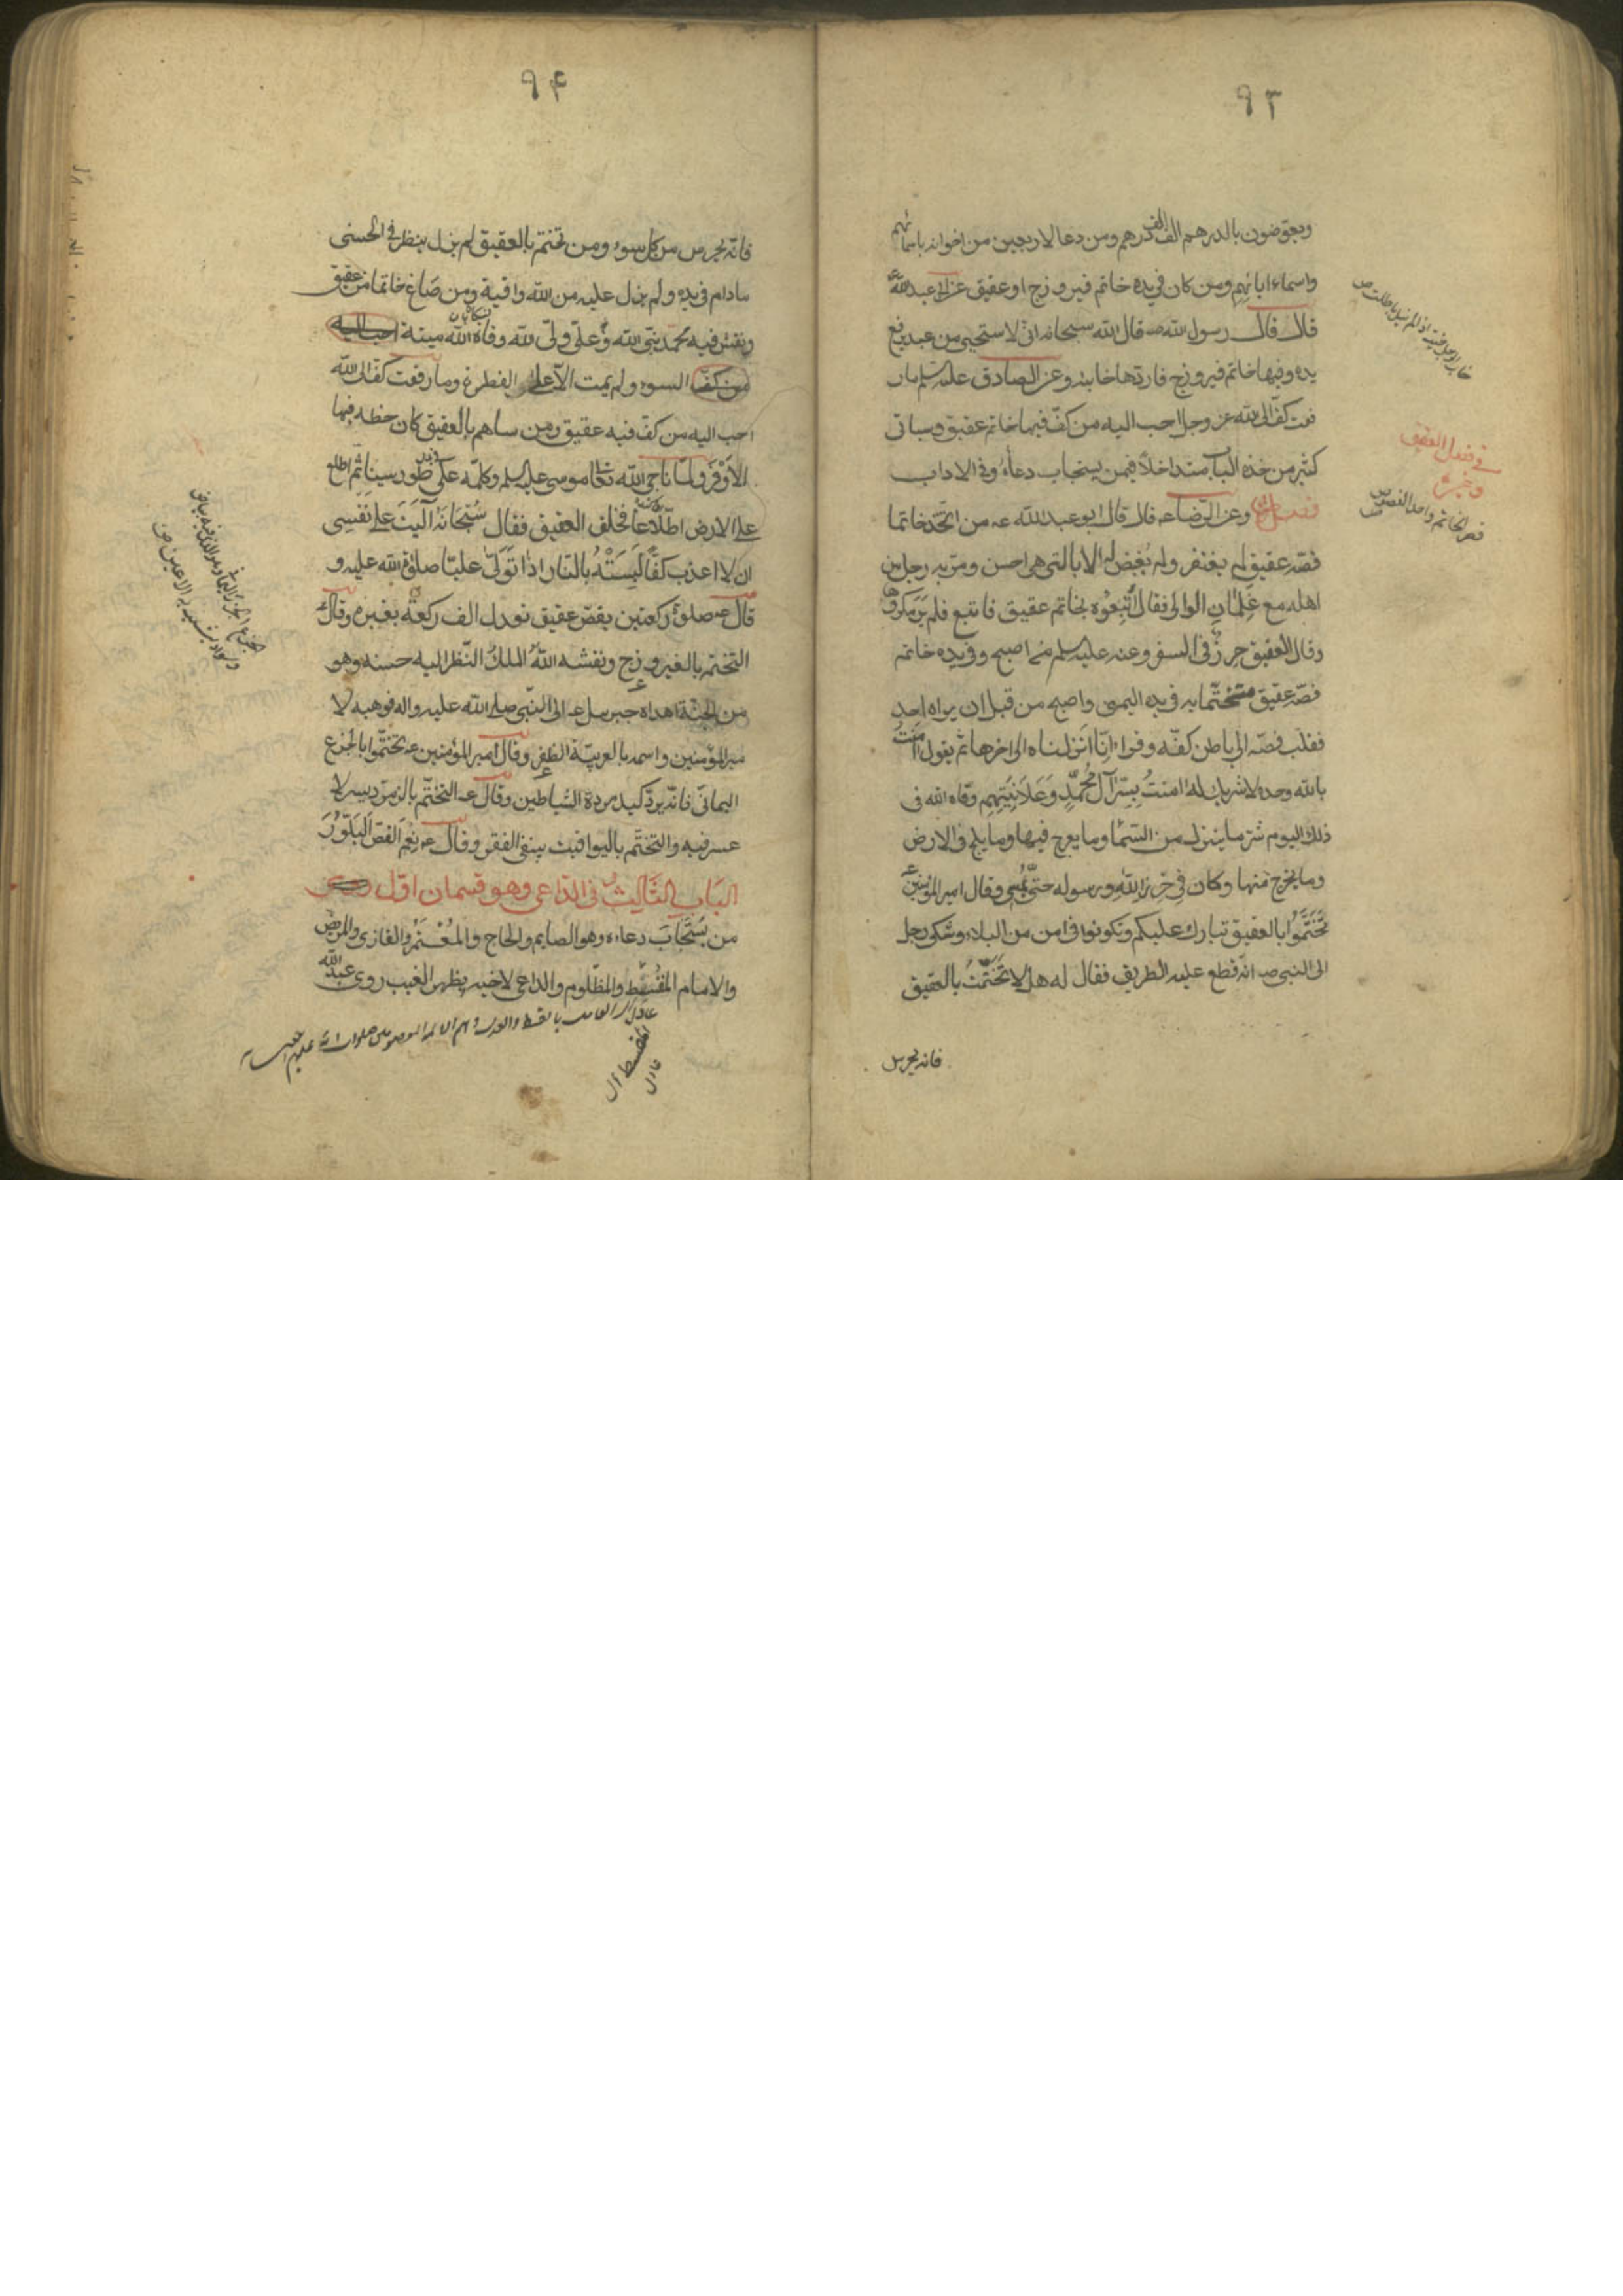 ٩٣
ويعوضون بالدرهم الف الف درهم ومن دعا لاربعين من اخوانه باسمائهم
واسماء ابائهم ومن كان في يده خاتم فيروزج او عقيق عن ابي عبد الله ع
قال قال رسول الله ص قال الله سبحانه اني لاستحيي من عبد يرفع
يده وفيها خاتم فيروزج فاردها خائبة وعن الصادق عليه سلم ما ر
فعت كف الى الله عز وجل احب اليه من كف فيها خاتم عقيق وسياتي
كثير من هذه الباب متداخلا فيمن يستجاب دعاءه وفي الاداب
فصل وعن الرضا عه قال قال ابو عبد الله عه من اتخذ خاتما
فصه عقيق لم يفتقر ولم يقض له الا بالتي هي احسن ومر به رجل من
اهله مع غلمان الوالي فقال اتبعوه بخاتم عقيق فاتبع فلم ير مكروها
وقال العقيق حرز في السفر وعنه عليه سلم من اصبح وفي يده خاتم
فصه عقيق متختما به في يده اليمنى واصبح من قبل ان يراه احد
فقلب فصه الى باطن كفه وقراء انا انزلناه الى اخرها ثم يقول امنت
بالله وحده لا شريك له امنتُ بِسِرّ آل مُحمّدٍ وَعَلَانِيَتِهِم وقاه الله في
ذلك اليوم شر ما ينزل من السّمآ وما يعرج فيها وما يلج في الارض
وما يخرج منها وكان في حرز الله ورسوله حتى يمسي وقال امير المؤمنين ع
تَخَتَّمُوا بالعقيق تبارك عليكم وتكونوا في امن من البلاء وشكى رجل
الى النبي صه انه قطع عليه الطريق فقال له هلا تَخَتَّمْتَ بالعقيق
فانه يحرس
في فضل العقيق
وغيره
فص الخاتم واحد الفصوص ص
٩۴
فانه يحرس من كل سوء ومن تختم بالعقيق لم يزل ينظر في الحسنى
مادام في يده ولم يزل عليه من الله واقية ومن صاغ خاتما من عقيق
ونقش فيه محمد نبي الله وعلي ولي الله وقاه الله ميتة احب اليه
من كف السوء ولم يمت الا على الفطرة وما رفعت كف الى الله
احب اليه من كف فيه عقيق ومن ساهم بالعقيق كان حظه فيها
الاَوْفَر ولما ناجى الله تعا موسى عليه سلم وكلمه على طور سينا ثم اطلع
على الارض اطلاعا فخلق العقيق فقال سُبْحَانَهُ آلَيْتُ عَلى نَفْسِي
ان لا اعذب كفا لَبِسَتْهُ بالنار اذا تَوَلّى عليّا صلوة الله عليه و
قال عه صلوة ركعتين بفص عقيق تعدل الف ركعة بغيره وقال ع
التختم بالفيروزج ونقشه اللهُ الملك النظر اليه حسنه وهو
من الجنة اهداه جبرئيل عه الى النبي صلى الله عليه واله فوهبه لا
مير المؤمنين واسمه بالعربية الظفر وقال امير المؤمنين عه تختموا بالجزع
اليماني فانه يرد كيد مردة الشياطين وقال عه التختم بالزمرد يسر لا
عسر فيه والتختم باليواقيت ينفي الفقر وقال عه نِعْمَ الفص البَلّوْرُ
البَاب الثَّالِثُ في الداعي وهو قسمان اول
من يُسْتَجَابَ دعاءه وهو الصايم والحاج والمُعْتَمِر والغازي والمريض
والامام المُقْسِطِ والمظلوم والداعي لاخيه بظهر الغيب روى عبد الله
عادل
المقسط
عادل